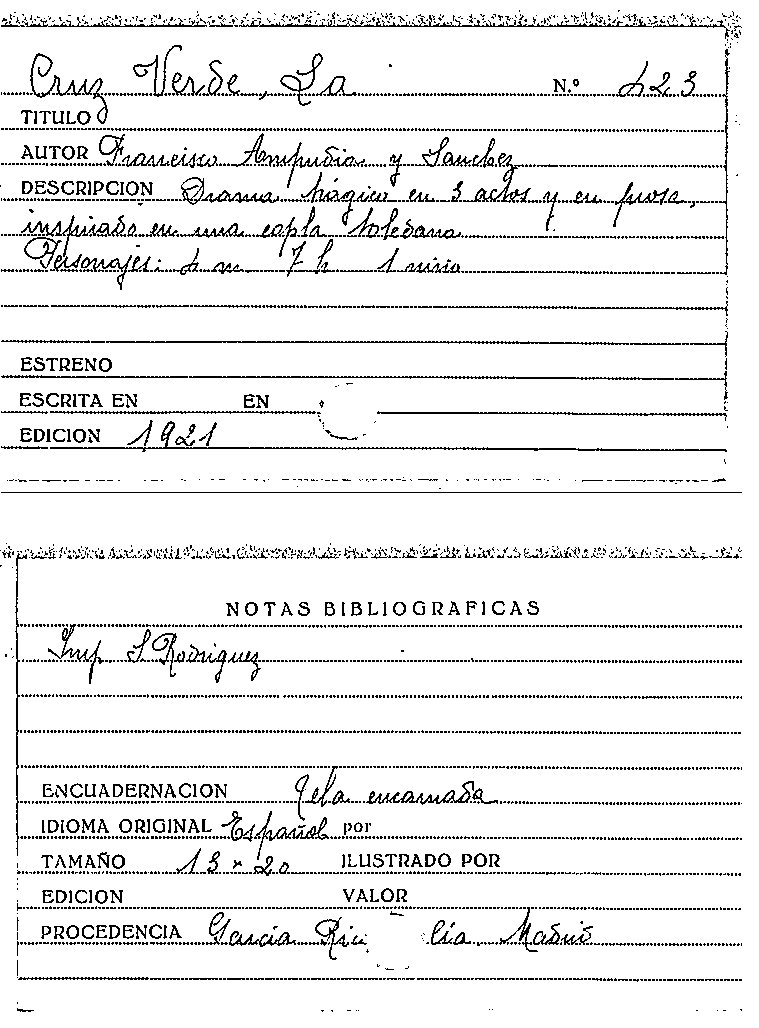 Cruz Verde, La N.º 423
TITULO
AUTOR Francisco Ampudia y Sanchez
DESCRIPCION Drama trágico en 3 actos y en prosa,
inspirado en una copla toledana
Personajes: 4 m 7 h 1 niño
ESTRENO
ESCRITA EN EN
EDICION 1921
NOTAS BIBLIOGRAFICAS
Imp S. Rodriguez
ENCUADERNACION Tela encarnada
IDIOMA ORIGINAL Español por
TAMAÑO 13 x 20 ILUSTRADO POR
EDICION VALOR
PROCEDENCIA Garcia Ric Cia. Madrid